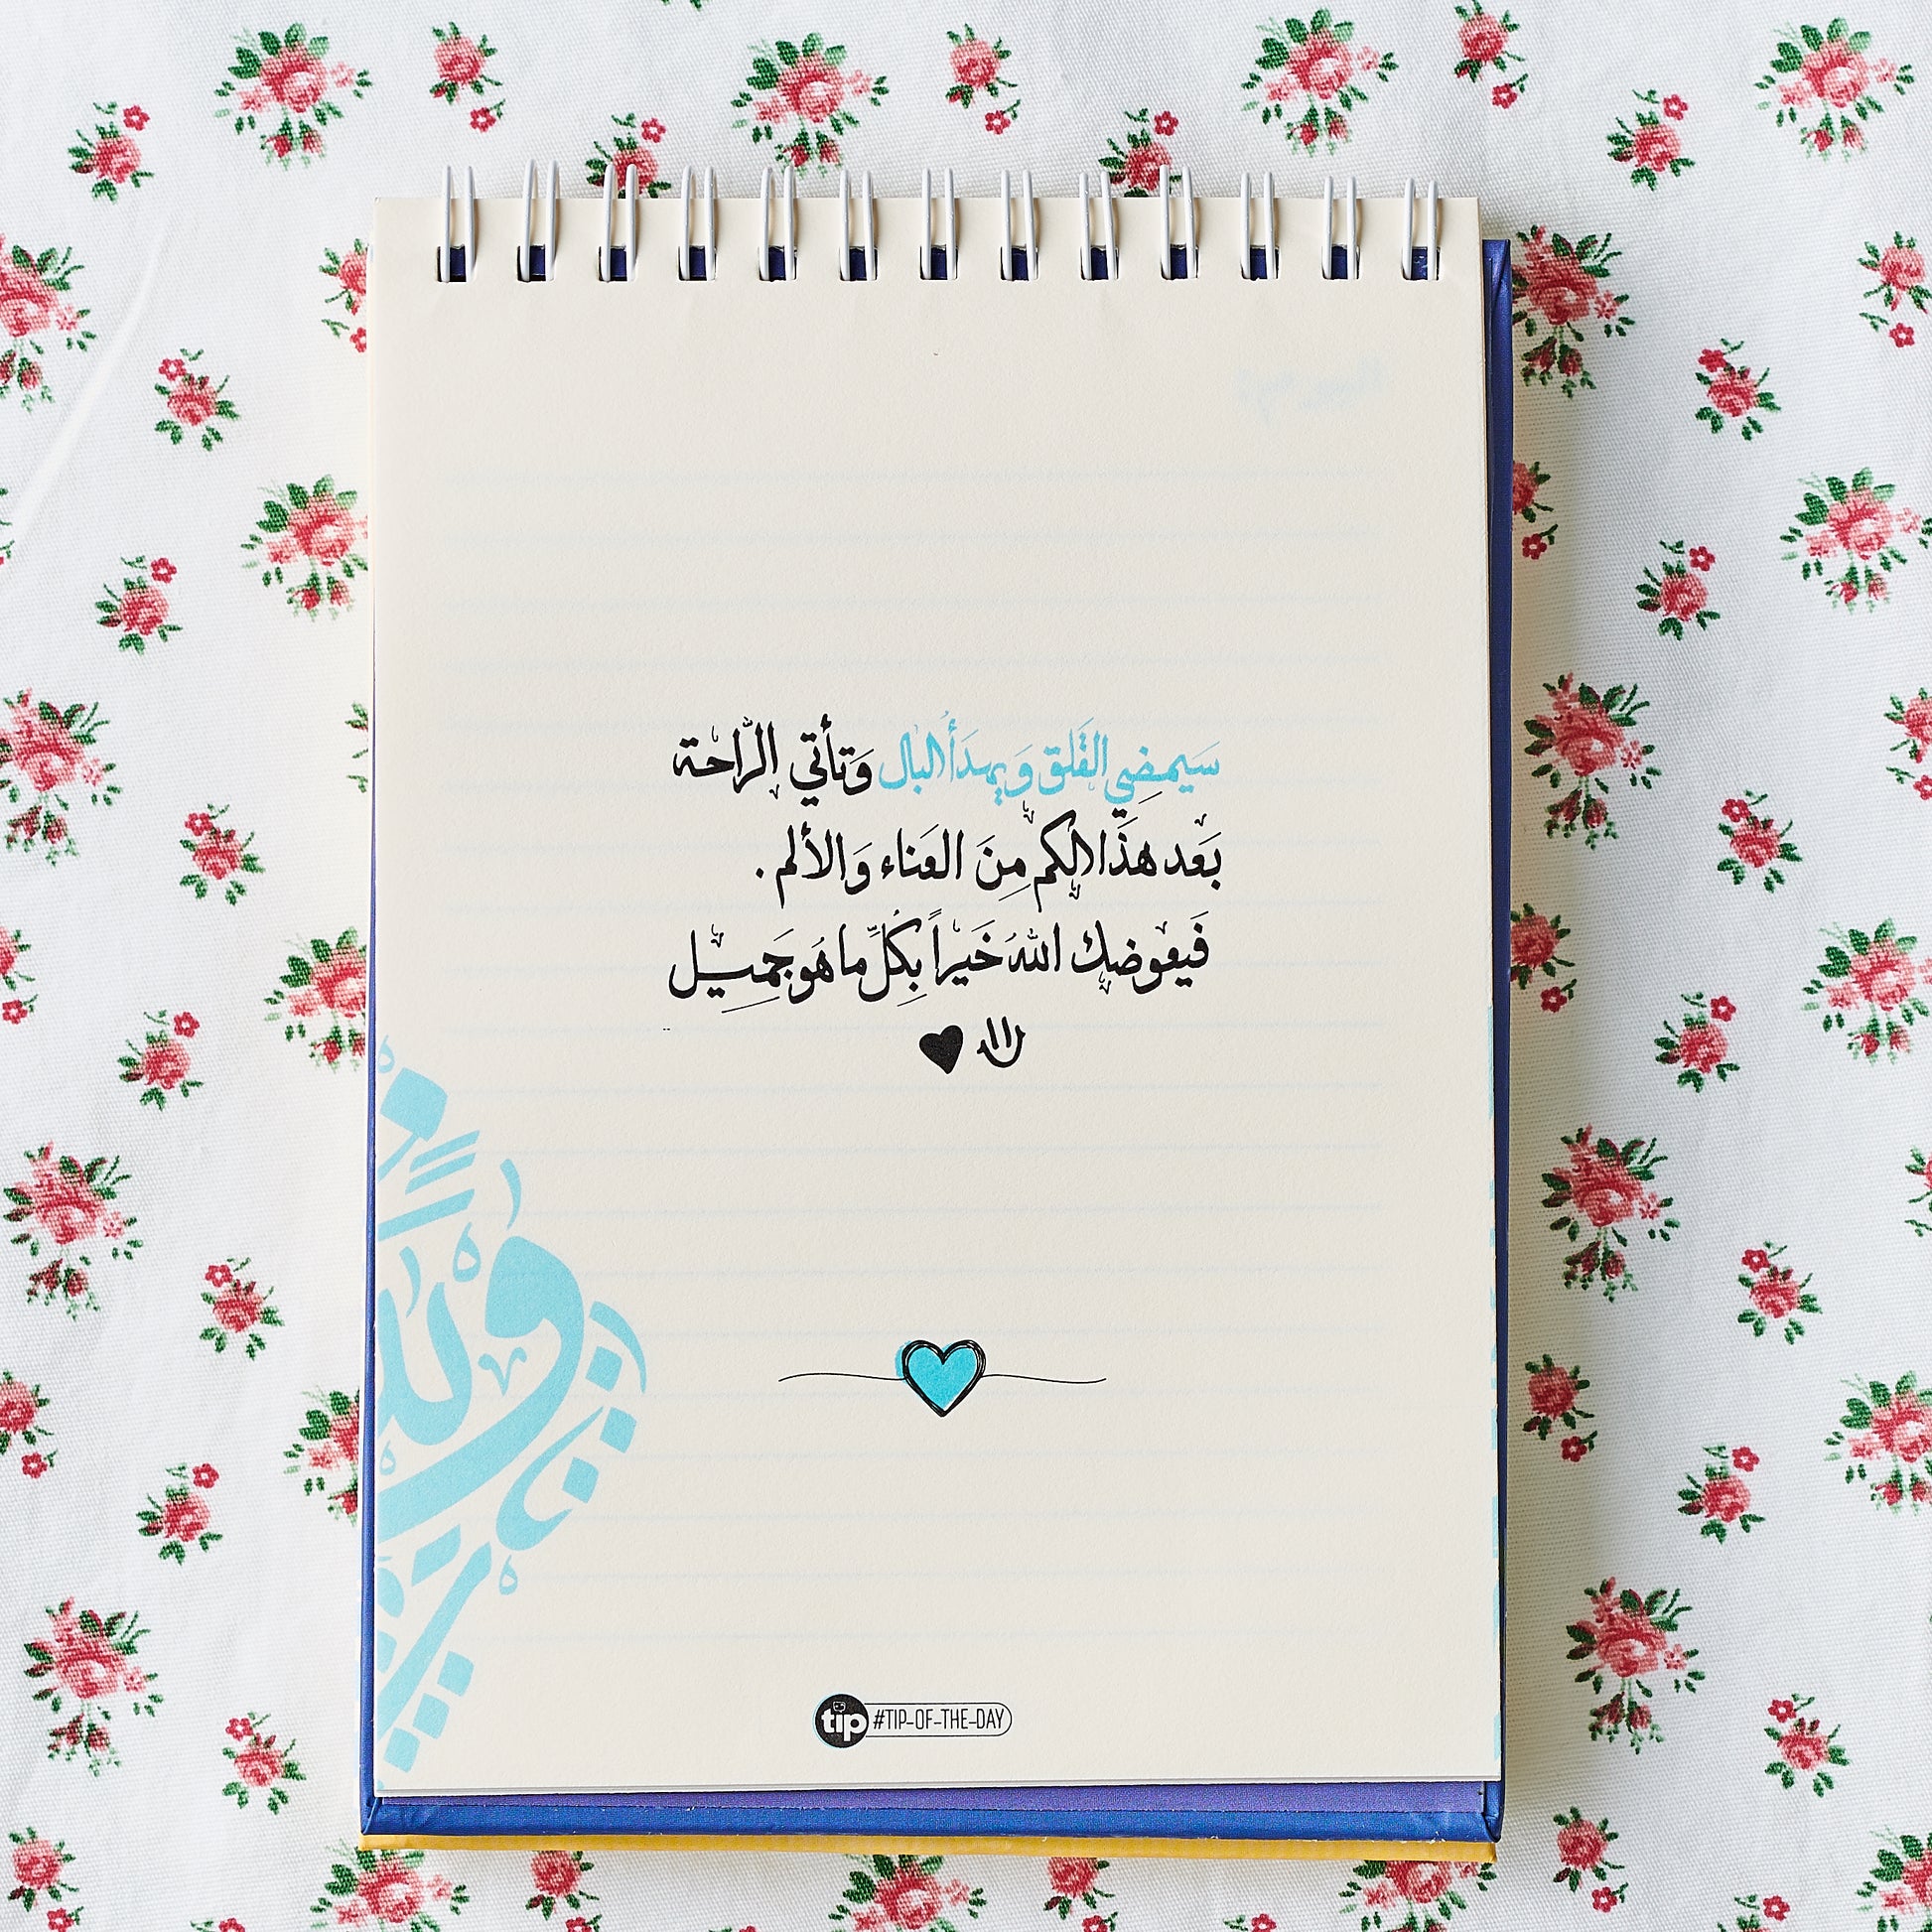 سَيمضي القَلق وَيهدَأُ البال وَتأتي الرّاحة
بَعد هذَا الكم مِنَ العَناء وَالألم .
فَيعوضك اللهُ خَيراً بِكُلِّ ما هُو جَميل
tip #TIP-OF-THE-DAY